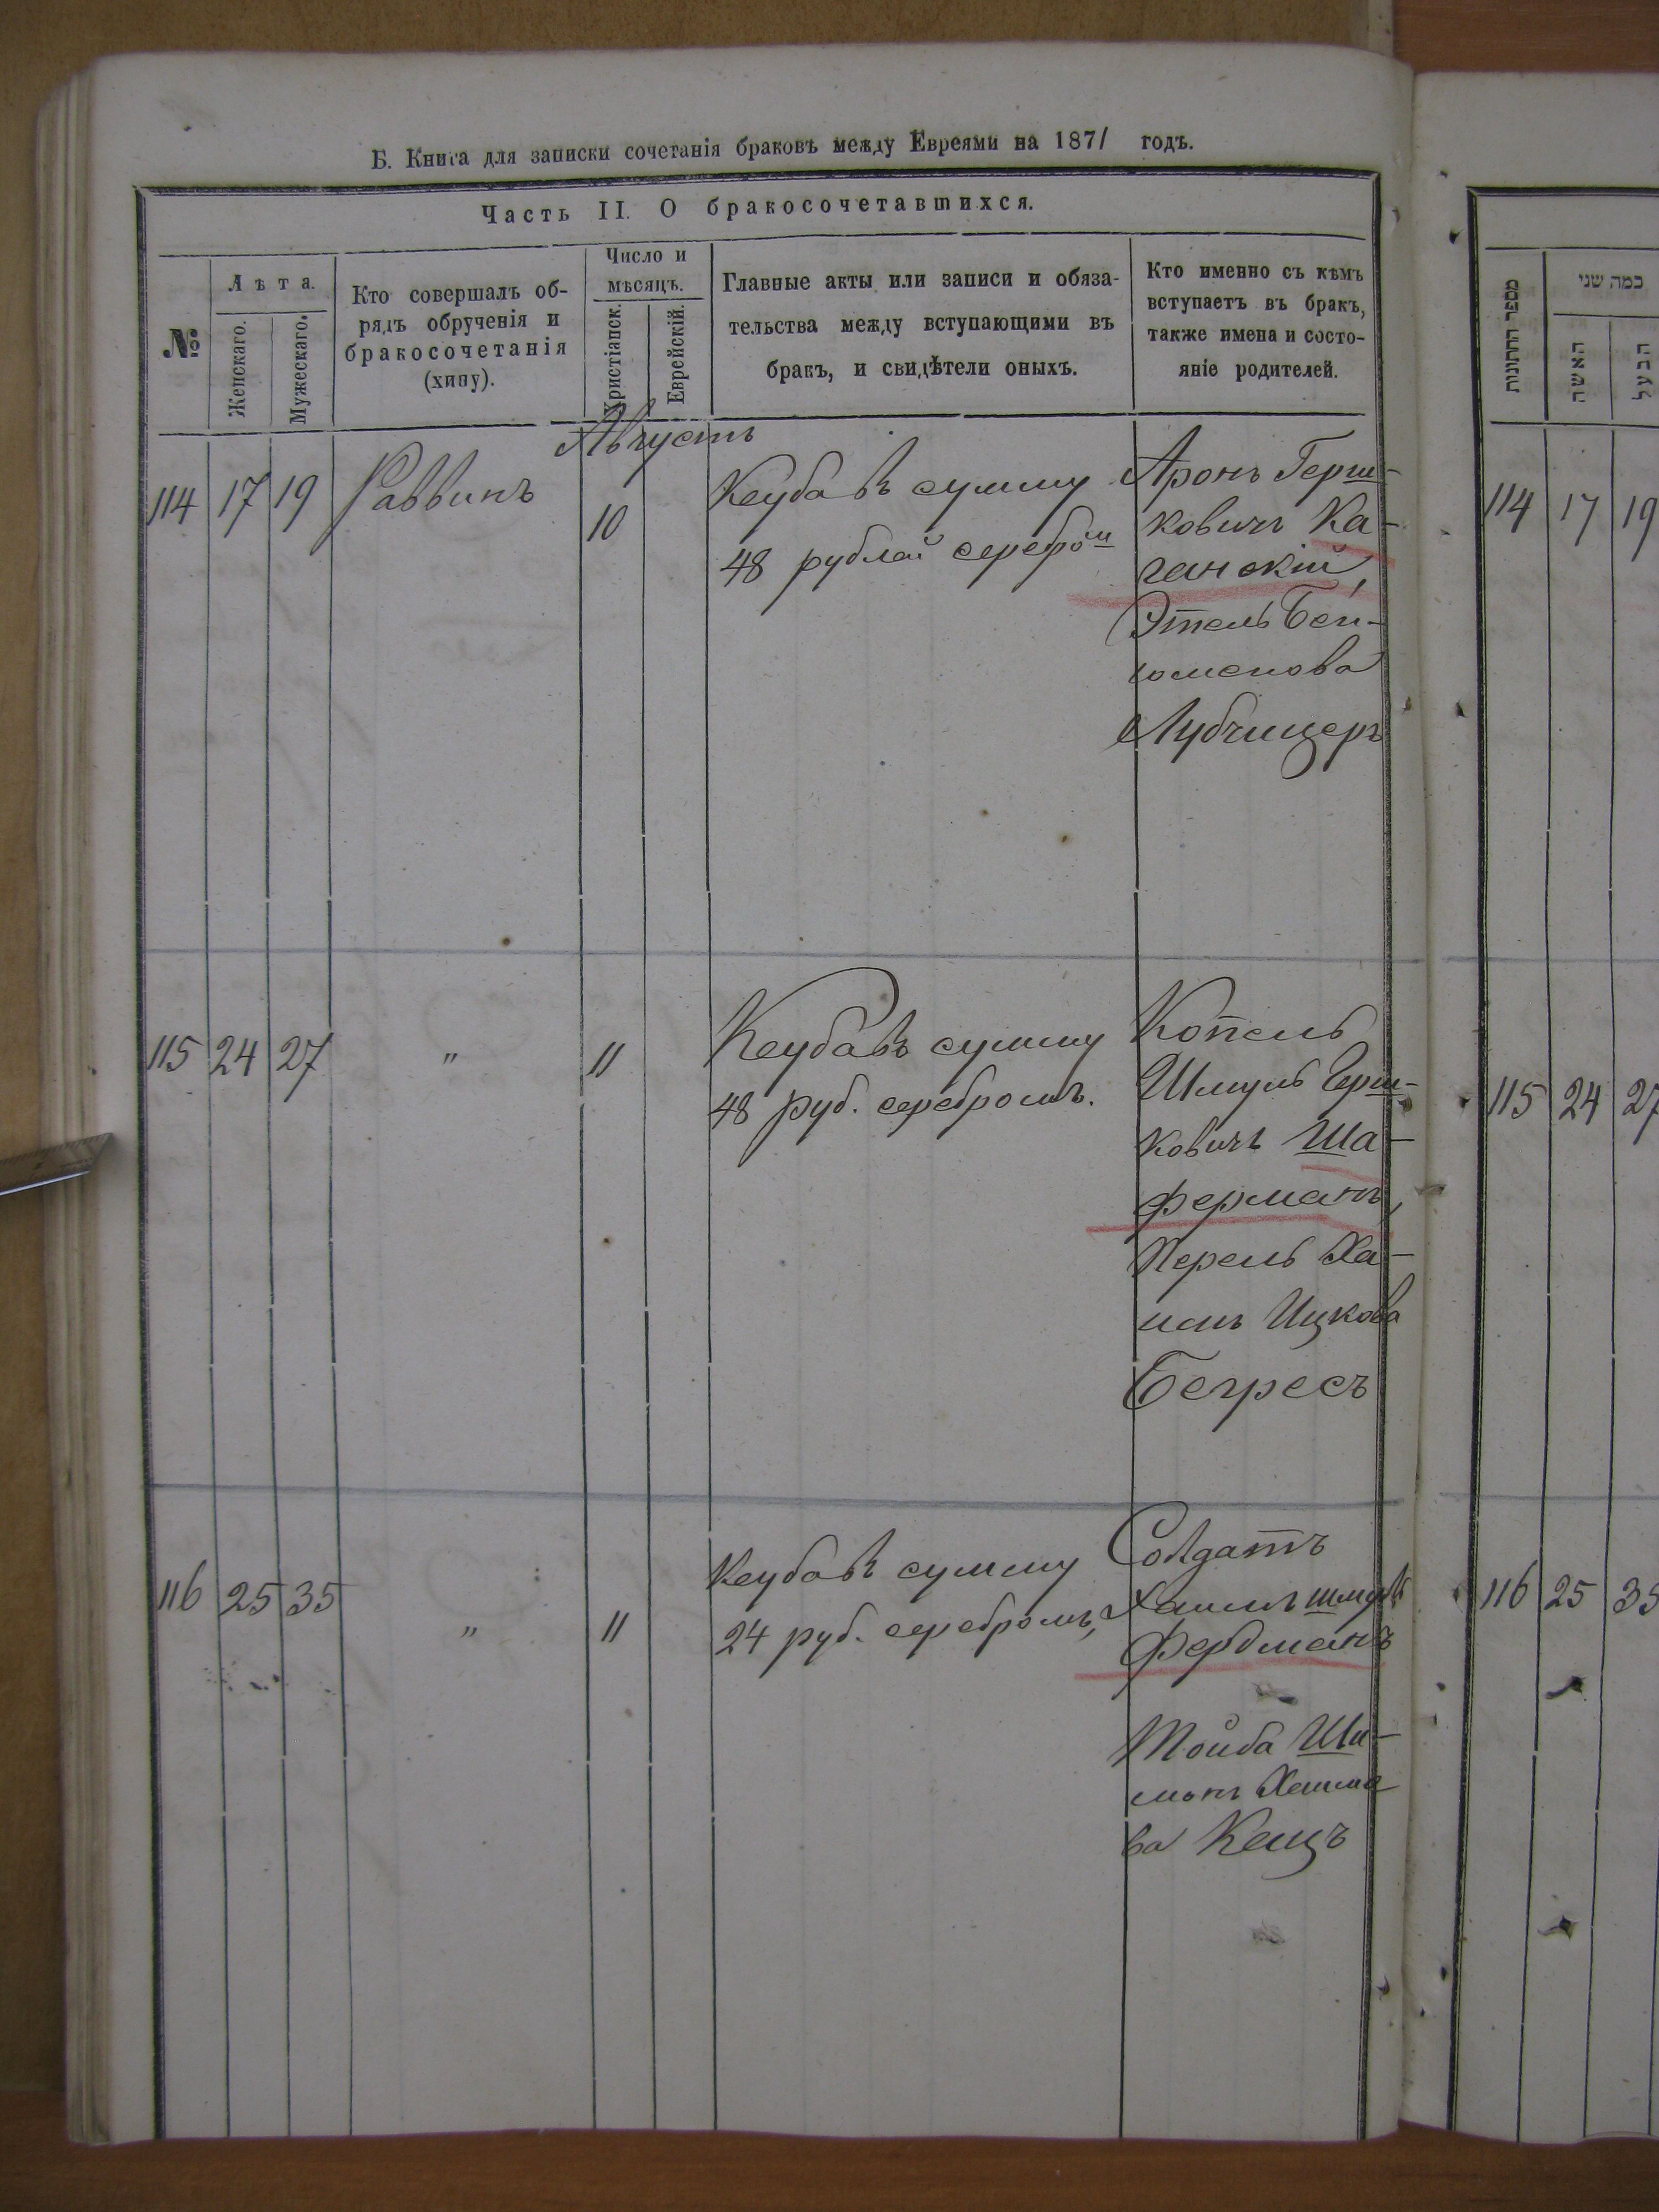 Б. Книга для записки сочетанія браковъ между Евреями на 1871 годъ.
Часть II. О бракосочетавшихся.
№
Лѣта.
Женскаго.
Мужескаго.
Кто совершалъ об-
рядъ обрученія и
бракосочетанія
(хипу).
Число и
мѣсяцъ.
Христіанск.
Еврейскій.
Главные акты или записи и обяза-
тельства между вступающими въ
бракъ, и свидѣтели оныхъ.
Кто именно съ кѣмъ
вступаетъ въ бракъ,
также имена и состо-
яніе родителей.
Августъ
114 17 19 Раввинъ 10
Кеуба въ сумму
48 рублей серебром
Аронъ Герш-
ковичъ Ка-
ганскій,
Этель Бен-
юменова
Лубчицеръ
115 24 27 " 11
Кеуба въ сумму
48 руб. серебромъ.
Копель
Шмуль Герш-
ковичъ Ша-
ферманъ,
Перель Ха-
Ицкова
116 25 35 " 11
Кеуба въ сумму
24 руб. серебромъ,
Солдатъ
Хаимъ
Фердманъ
Тойба Ши-
ва Кацъ
מספר החתונות
כמה שני
האשה
הבעל
114 17 19
115 24 27
116 25 35